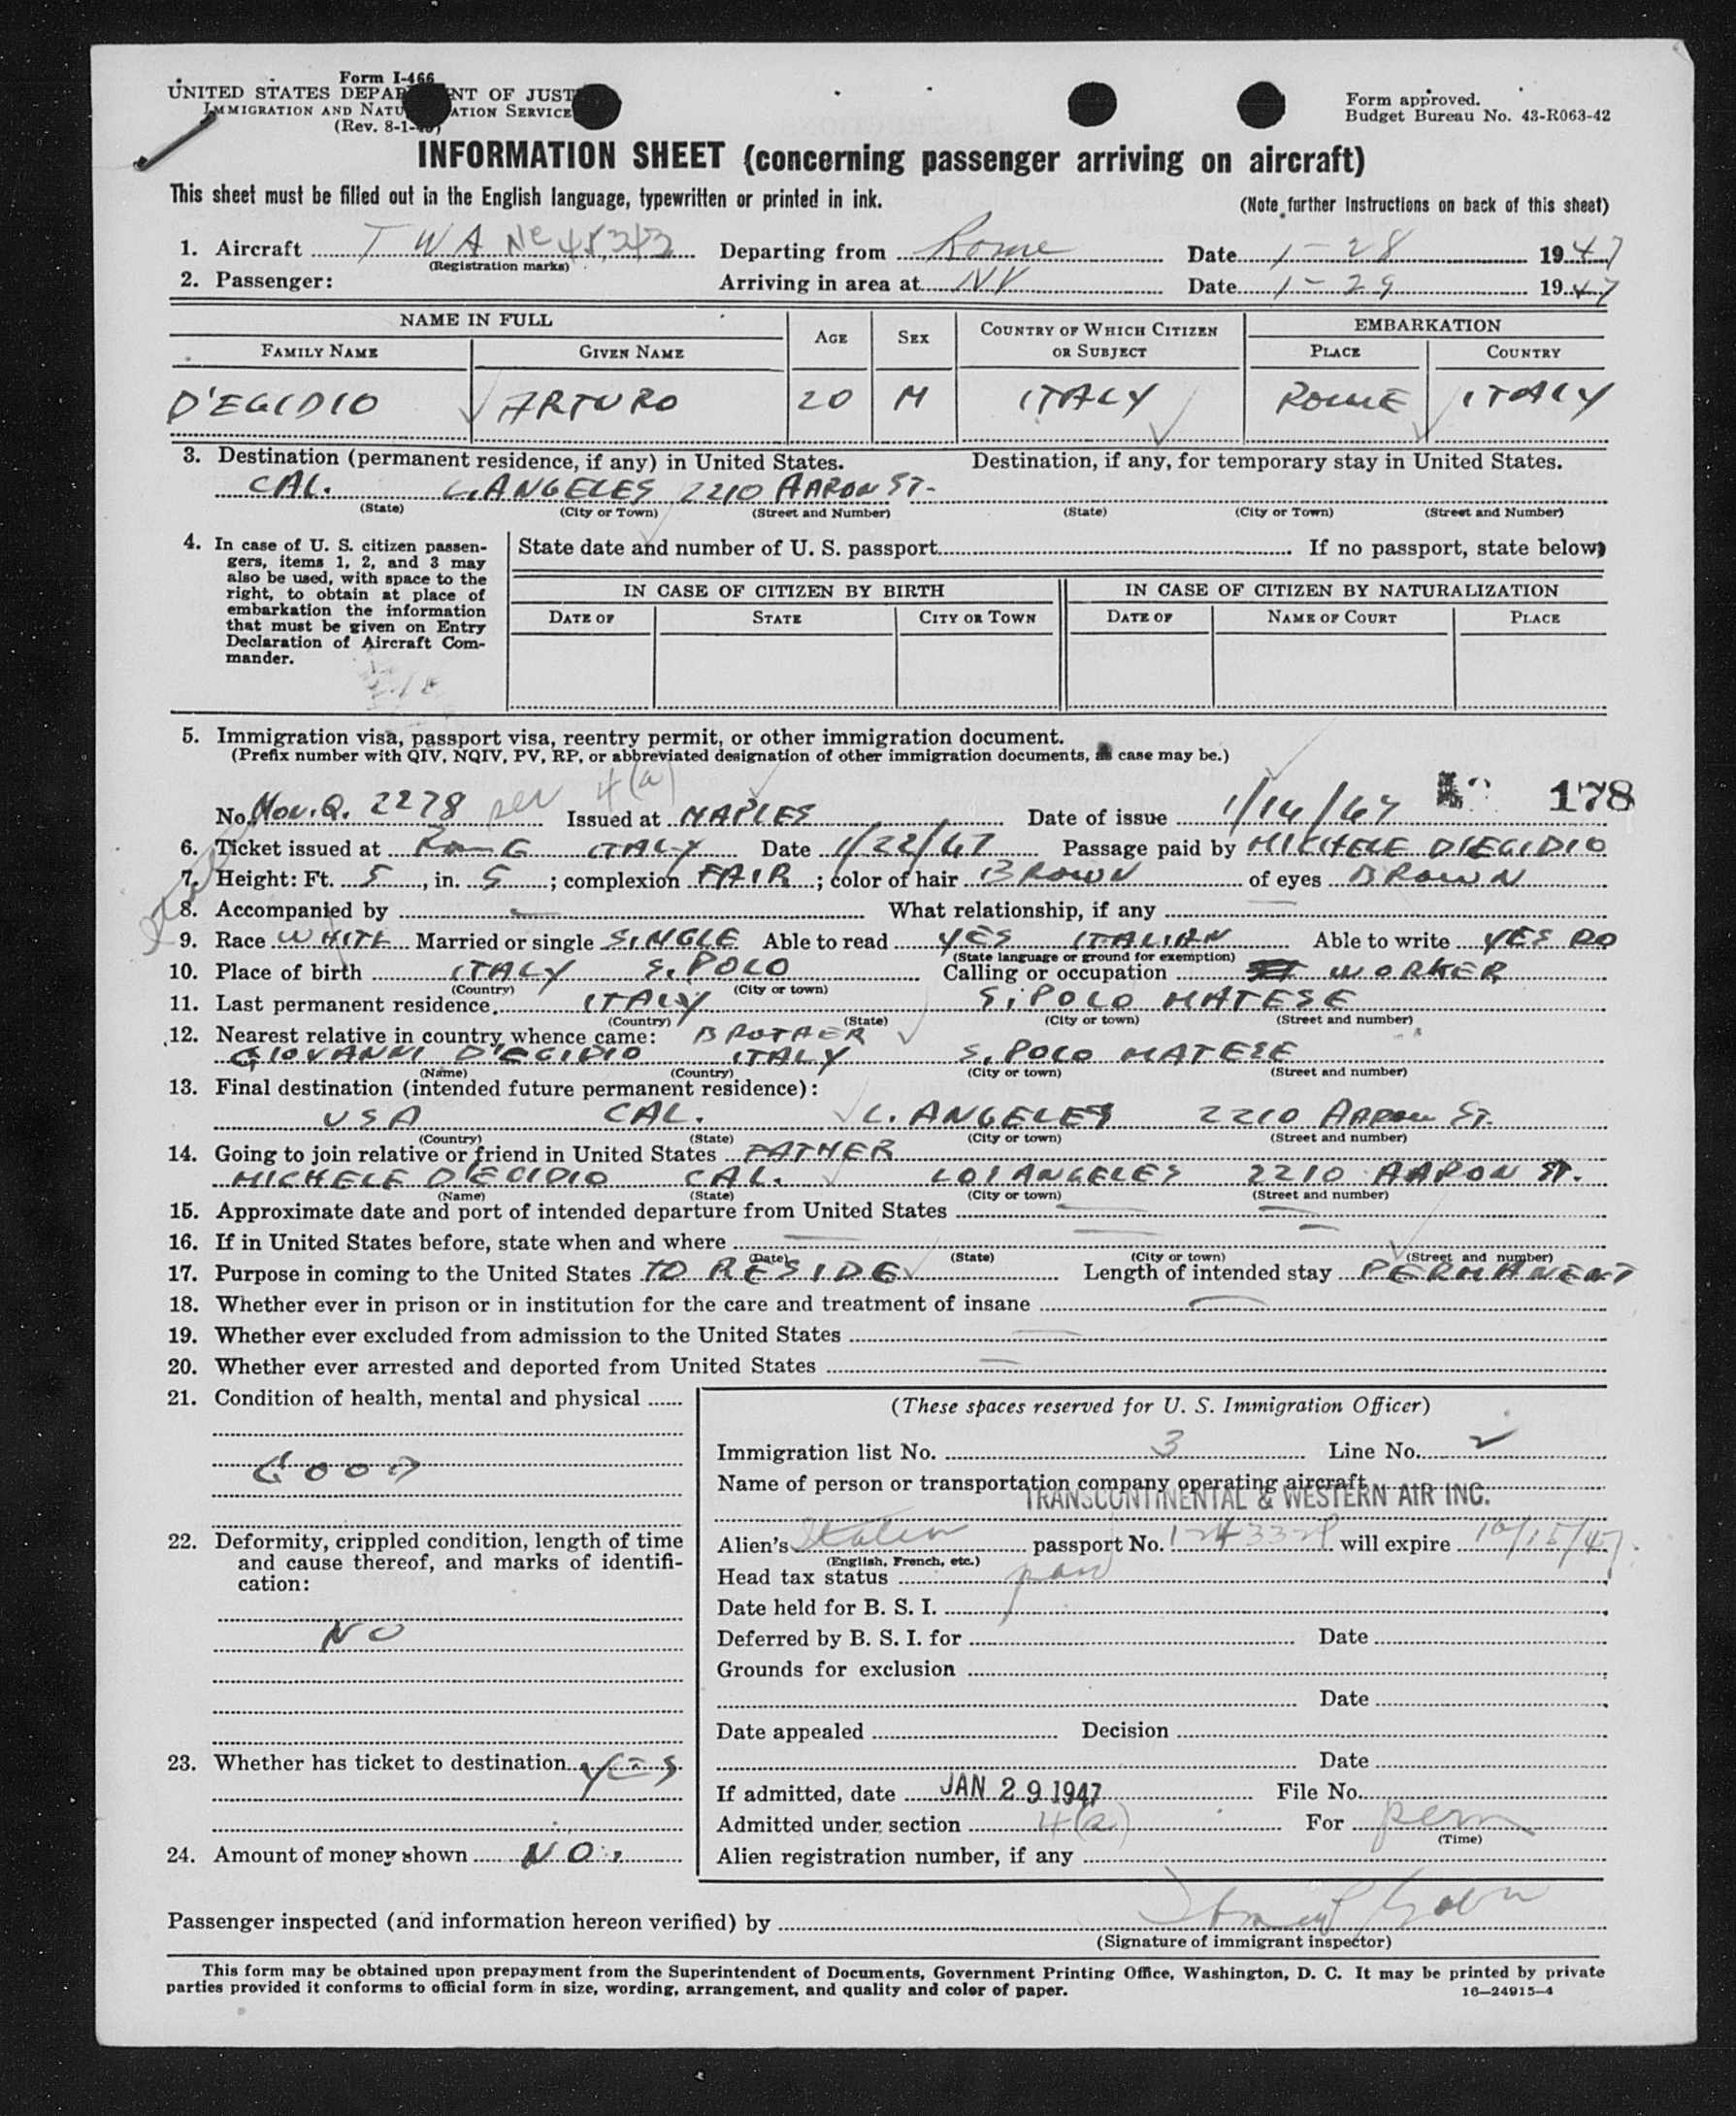 Form I-466
UNITED STATES DEPARTMENT OF JUSTICE
IMMIGRATION AND NATURALIZATION SERVICE
(Rev. 8-1-
Form approved.
Budget Bureau No. 43-R063-42
INFORMATION SHEET (concerning passenger arriving on aircraft)
This sheet must be filled out in the English language, typewritten or printed in ink.
(Note further Instructions on back of this sheet)
1. Aircraft TWA Nc 45343 Departing from Rome Date 1-28 1947
(Registration marks)
2. Passenger: Arriving in area at NY Date 1-29 1947
NAME IN FULL AGE SEX COUNTRY OF WHICH CITIZEN OR SUBJECT EMBARKATION
FAMILY NAME GIVEN NAME PLACE COUNTRY
D'EGIDIO ARTURO 20 M ITALY ROME ITALY
3. Destination (permanent residence, if any) in United States. Destination, if any, for temporary stay in United States.
CAL. L. ANGELES 2210 AARON ST.
(State) (City or Town) (Street and Number) (State) (City or Town) (Street and Number)
4. In case of U. S. citizen passengers, items 1, 2, and 3 may also be used, with space to the right, to obtain at place of embarkation the information that must be given on Entry Declaration of Aircraft Commander.
State date and number of U. S. passport If no passport, state below
IN CASE OF CITIZEN BY BIRTH IN CASE OF CITIZEN BY NATURALIZATION
DATE OF STATE CITY OR TOWN DATE OF NAME OF COURT PLACE
5. Immigration visa, passport visa, reentry permit, or other immigration document.
(Prefix number with QIV, NQIV, PV, RP, or abbreviated designation of other immigration documents, as case may be.)
4(a)
178
No. Non.Q. 2278 Issued at NAPLES Date of issue 1/14/47
6. Ticket issued at Rome ITALY Date 1/22/47 Passage paid by MICHELE D'EGIDIO
7. Height: Ft. 5, in. 5; complexion FAIR; color of hair BROWN of eyes BROWN
8. Accompanied by — What relationship, if any —
9. Race WHITE Married or single SINGLE Able to read YES ITALIAN Able to write YES DO
(State language or ground for exemption)
10. Place of birth ITALY S. POLO Calling or occupation WORKER
(Country) (City or town)
11. Last permanent residence ITALY S. POLO MATESE
(Country) (State) (City or town) (Street and number)
12. Nearest relative in country whence came: BROTHER
GIOVANNI D'EGIDIO ITALY S. POLO MATESE
(Name) (Country) (City or town) (Street and number)
13. Final destination (intended future permanent residence):
USA CAL. L. ANGELES 2210 Aaron St.
(Country) (State) (City or town) (Street and number)
14. Going to join relative or friend in United States FATHER
MICHELE D'EGIDIO CAL. LOS ANGELES 2210 AARON ST.
(Name) (State) (City or town) (Street and number)
15. Approximate date and port of intended departure from United States —
16. If in United States before, state when and where —
(Date) (State) (City or town) (Street and number)
17. Purpose in coming to the United States TO RESIDE Length of intended stay PERMANENT
18. Whether ever in prison or in institution for the care and treatment of insane —
19. Whether ever excluded from admission to the United States —
20. Whether ever arrested and deported from United States —
21. Condition of health, mental and physical
GOOD
22. Deformity, crippled condition, length of time and cause thereof, and marks of identification:
NO
23. Whether has ticket to destination YES
24. Amount of money shown NO.
(These spaces reserved for U. S. Immigration Officer)
Immigration list No. 3 Line No. 2
Name of person or transportation company operating aircraft
TRANSCONTINENTAL & WESTERN AIR INC.
Alien's Italian passport No. will expire 10/15/47.
(English, French, etc.)
Head tax status paid
Date held for B. S. I.
Deferred by B. S. I. for Date
Grounds for exclusion
Date
Date appealed Decision
Date
If admitted, date JAN 29 1947 File No.
Admitted under section 4(a) For perm
(Time)
Alien registration number, if any
Passenger inspected (and information hereon verified) by
(Signature of immigrant inspector)
This form may be obtained upon prepayment from the Superintendent of Documents, Government Printing Office, Washington, D. C. It may be printed by private
parties provided it conforms to official form in size, wording, arrangement, and quality and color of paper.
16—24915-4